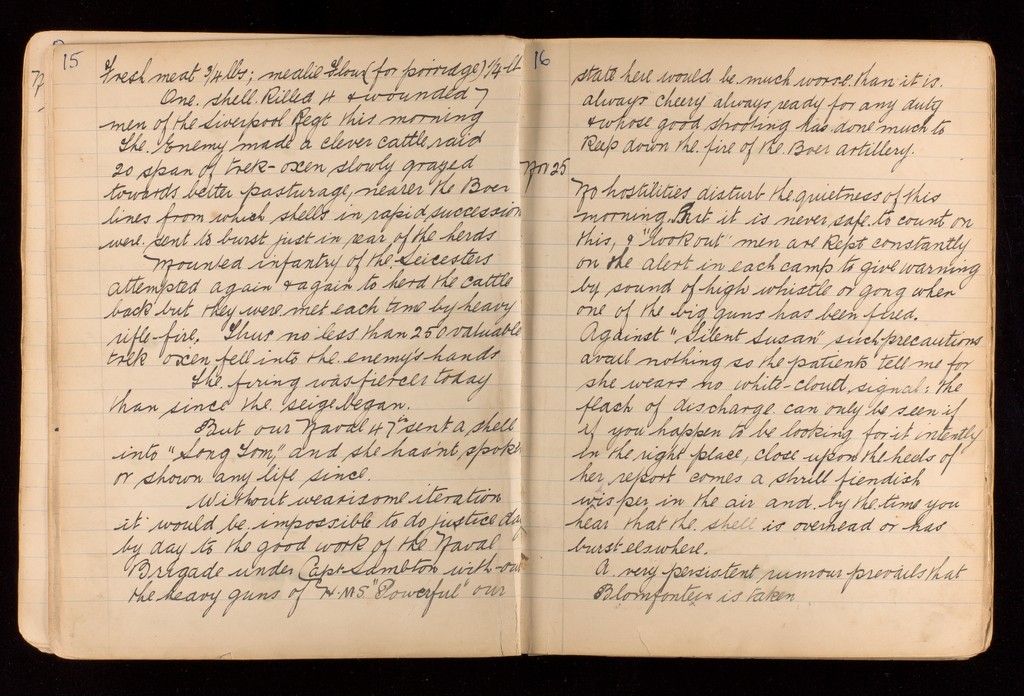 15
Fresh meat 3/4 lbs; mealie Flour (for porridge) 1/4 lb
One shell Killed 4 & wounded 7
men of the Liverpool Regt this morning
The Enemy made a clever cattle raid
20 span of trek-oxen slowly grazed
towards better pasturage, nearer the Boer
lines from which shells in rapid succession
were sent to burst just in rear of the herds
Mounted infantry of the Leicesters
attempted again & again to herd the cattle
back but they were met each time by heavy
rifle-fire. Thus no less than 250 valuable
trek oxen fell into the enemy's hands
The firing was fiercer today
than since the seige began.
But our Naval 4.7" sent a shell
into "Long Tom," and she hasn't spoke
or shown any life since.
Without wearisome iteration
it would be impossible to do justice day
by day to the good work of the Naval
Brigade under Capt Lambton with-out
the heavy guns of H.M.S "Powerful" our
16
state here would be much worse than it is.
always cheery always ready for any duty
& whose good shooting has done much to
keep down the fire of the Boer artillery.
Nov 25
No hostilities disturb the quietness of this
morning. But it is never safe to count on
this, & "look out" men are kept constantly
on the alert in each camp to give warning
by sound of high whistle or gong when
one of the big guns has been fired.
Against "Silent Susan" such precautions
avail nothing so the patients tell me for
she wears no white-cloud signal: the
flach of discharge can only be seen if
if you happen to be looking for it intently
in the right place, close upon the heels of
her report comes a shrill fiendish
wisper in the air and by the time you
hear that the shell is overhead or has
burst elswhere.
A very persistent rumour prevails that
Blomfontein is taken